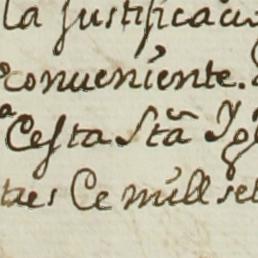 la Justificacio
conveniente.
Cesta Stã Ygl
tres Ce mill set